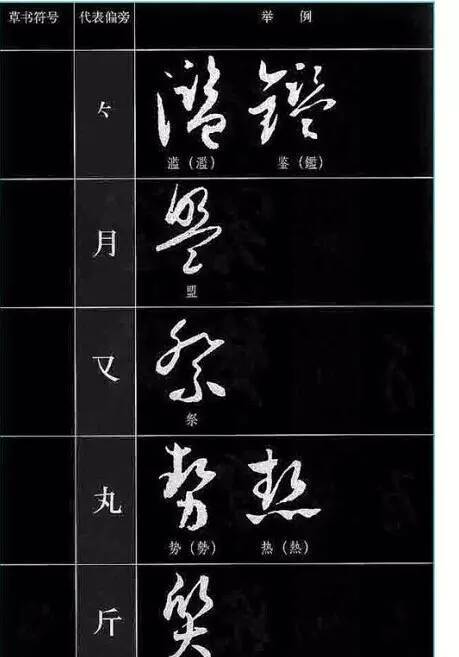 草书符号 代表偏旁 举 例
滥（濫） 鉴（鑑）
月
盟
又
祭
丸
势（勢） 热（熱）
斤